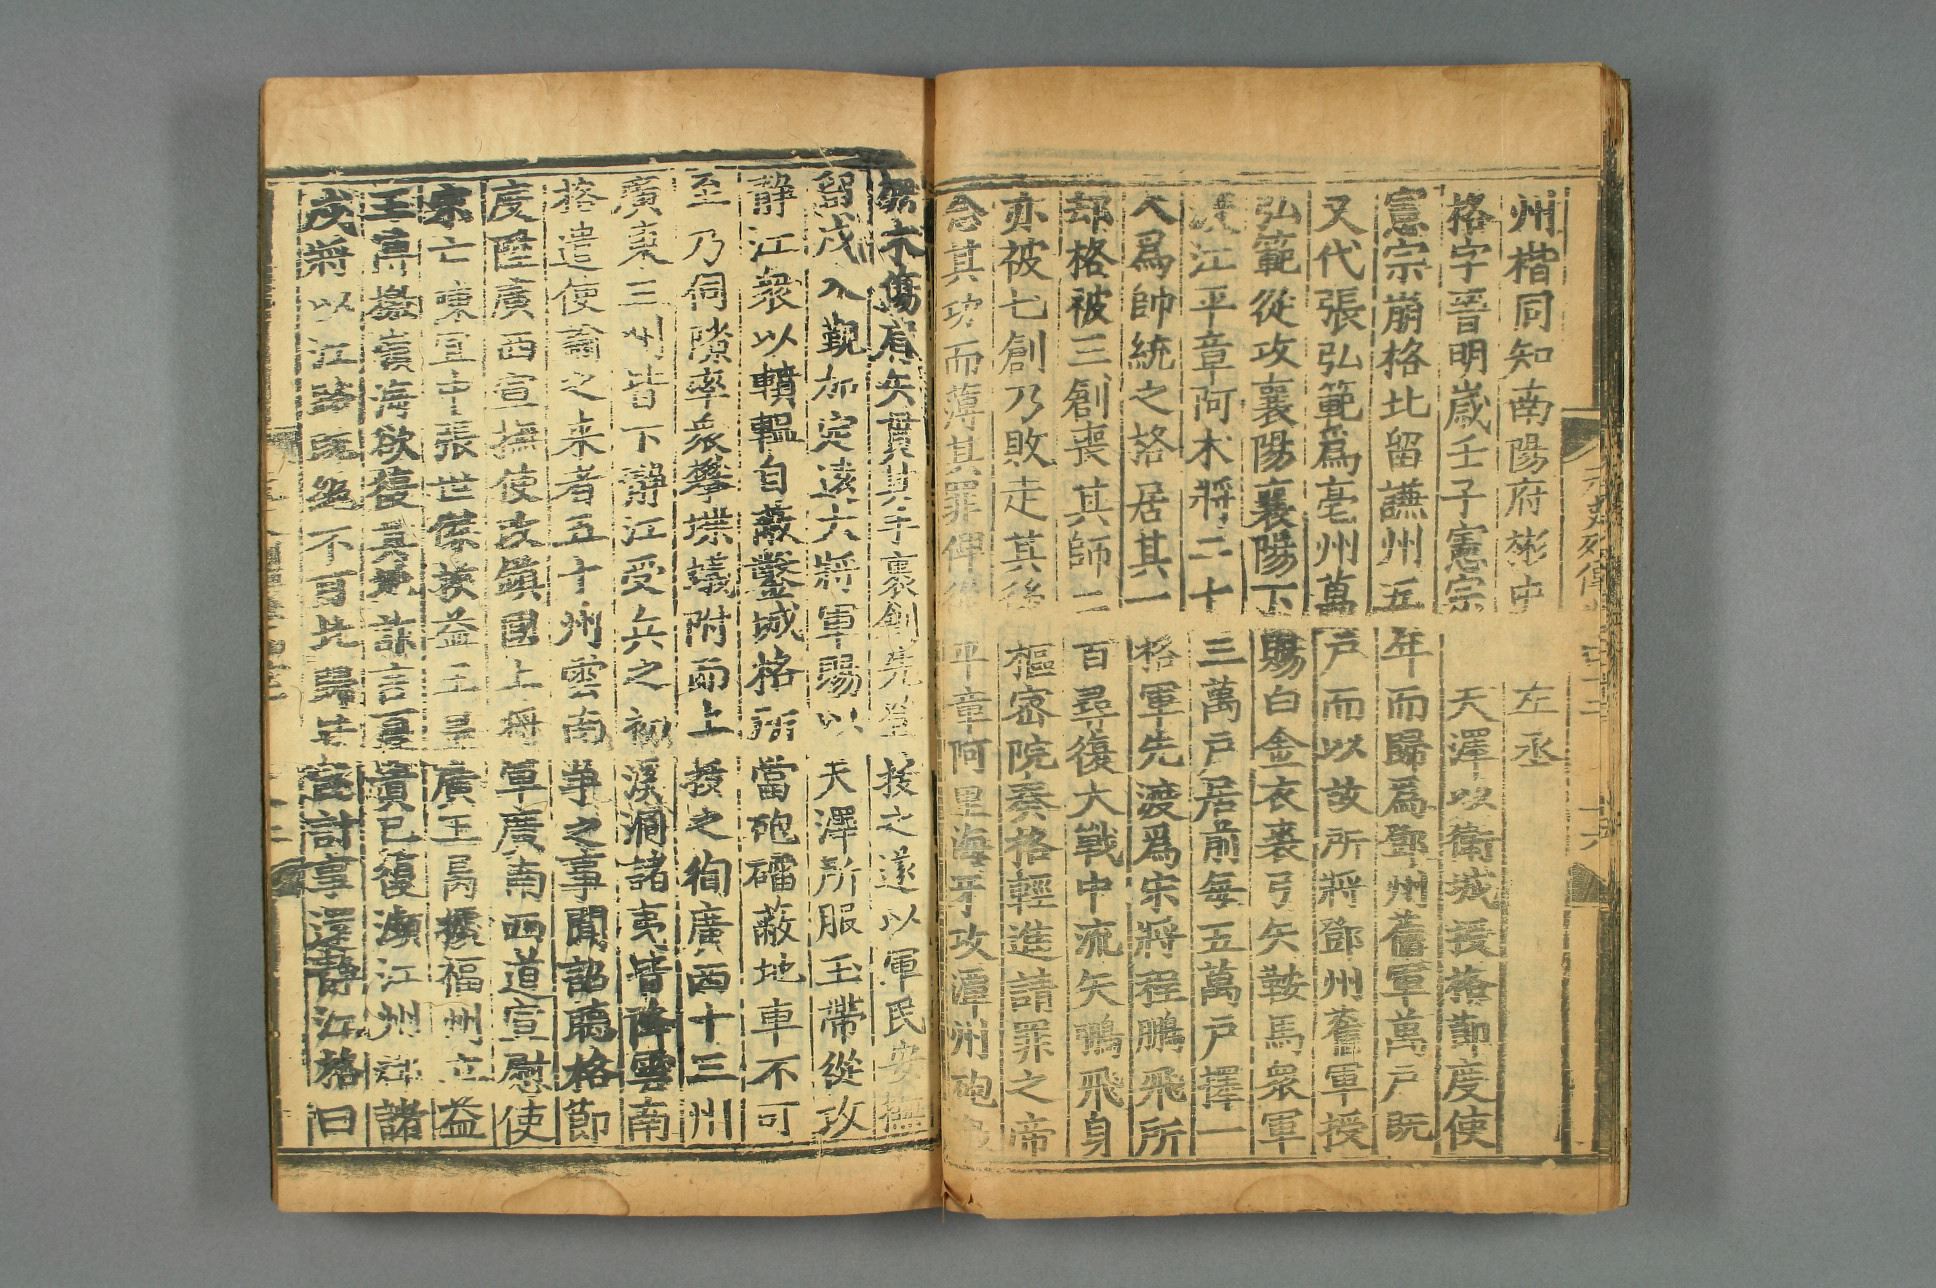 州楷同知南陽府彬中 左丞
格字晉明歲壬子憲宗 天澤以衛城授格節度使
憲宗崩格北留謙州五年而歸爲鄧州舊軍萬戶既
又代張弘範爲亳州萬戶而以故所將鄧州舊軍授
弘範從攻襄陽襄陽下賜白金衣裘弓矢鞍馬衆軍
渡江平章阿术將二十三萬戶居前每五萬戶擇一
人爲帥統之格居其一格軍先渡爲宋將程鵬飛所
却格被三創喪其師二百尋復大戰中流矢鵬飛身
亦被七創乃敗走其後樞密院奏格輕進請罪之帝
念其功而薄其罪俾從平章阿里海牙攻潭州砲
木傷肩矢貫其手裹創先登拔之遂以軍民安撫
留戍入覲加定遠大將軍賜以天澤所服玉帶從攻
静江衆以轒轀自蔽鑿城格所當砲礌蔽地車不可
至乃伺隙率衆攀堞蟻附而上拔之徇廣西十三州
廣東三州皆下靜江受兵之初溪洞諸夷皆降雲南
格遣使諭之来者五十州雲南爭之事聞詔聽格節
度陞廣西宣撫使改鎮國上將軍廣南西道宣慰使
宋亡陳宜中張世傑挾益王昰廣王昺據福州立益
王傳檄嶺海欲復其地詐言夏貴已復瀕江州郡諸
戍將以江路既絶不可北歸皆託計事還靜江格曰